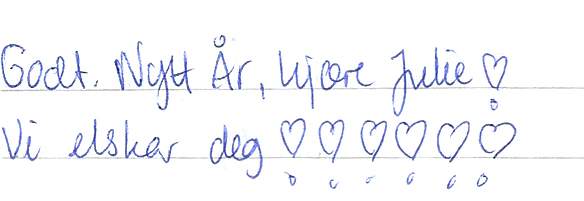 Godt. Nytt År, kjære Julie ♡
Vi elsker deg ♡♡♡♡♡♡